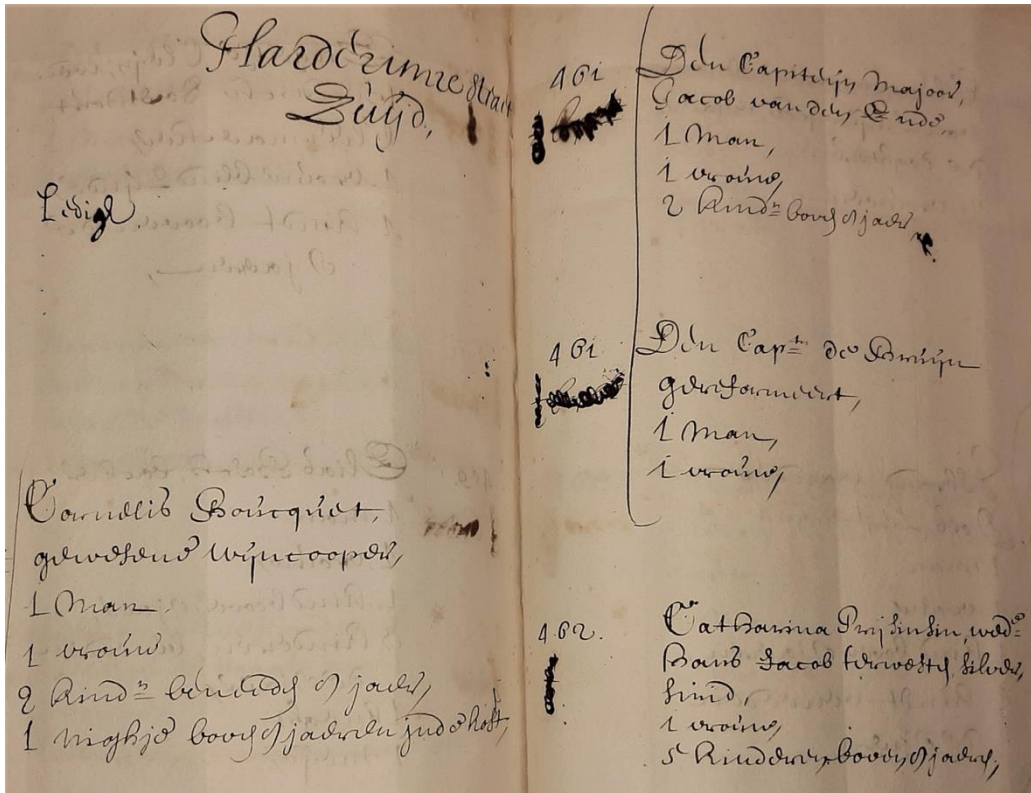 Flarderinge straet
Zuijd,
Ledigh.
Cornelis Boucquet,
gewesene wijncooper,
1 Man.
1 vrouw
2 kindn beneede 9 jaer,
1 nighje boven 9 jaeren in de kost,
461
Den Capiteijn Majoor,
Jacob van den Ende
1 Man,
1 vrouw,
2 kindn boven 9 jaer,
461
Den Captn de Bruijn
gereformeert,
1 Man,
1 vrouw,
462.
Catharina wede
Hans Jacob silver
smid,
1 vrouw,
5 kinderen boven 9 jaere,